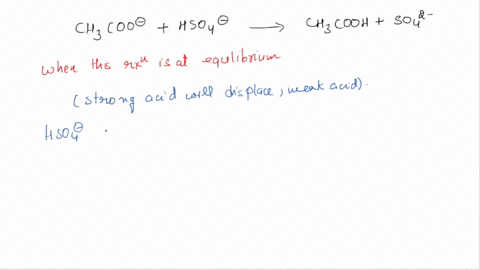 CH₃COO⊖ + HSO₄⊖ ⟶ CH₃COOH + SO₄²⁻
when this rxⁿ is at equlibrium
(strong acid will displace, weak acid).
HSO₄⊖